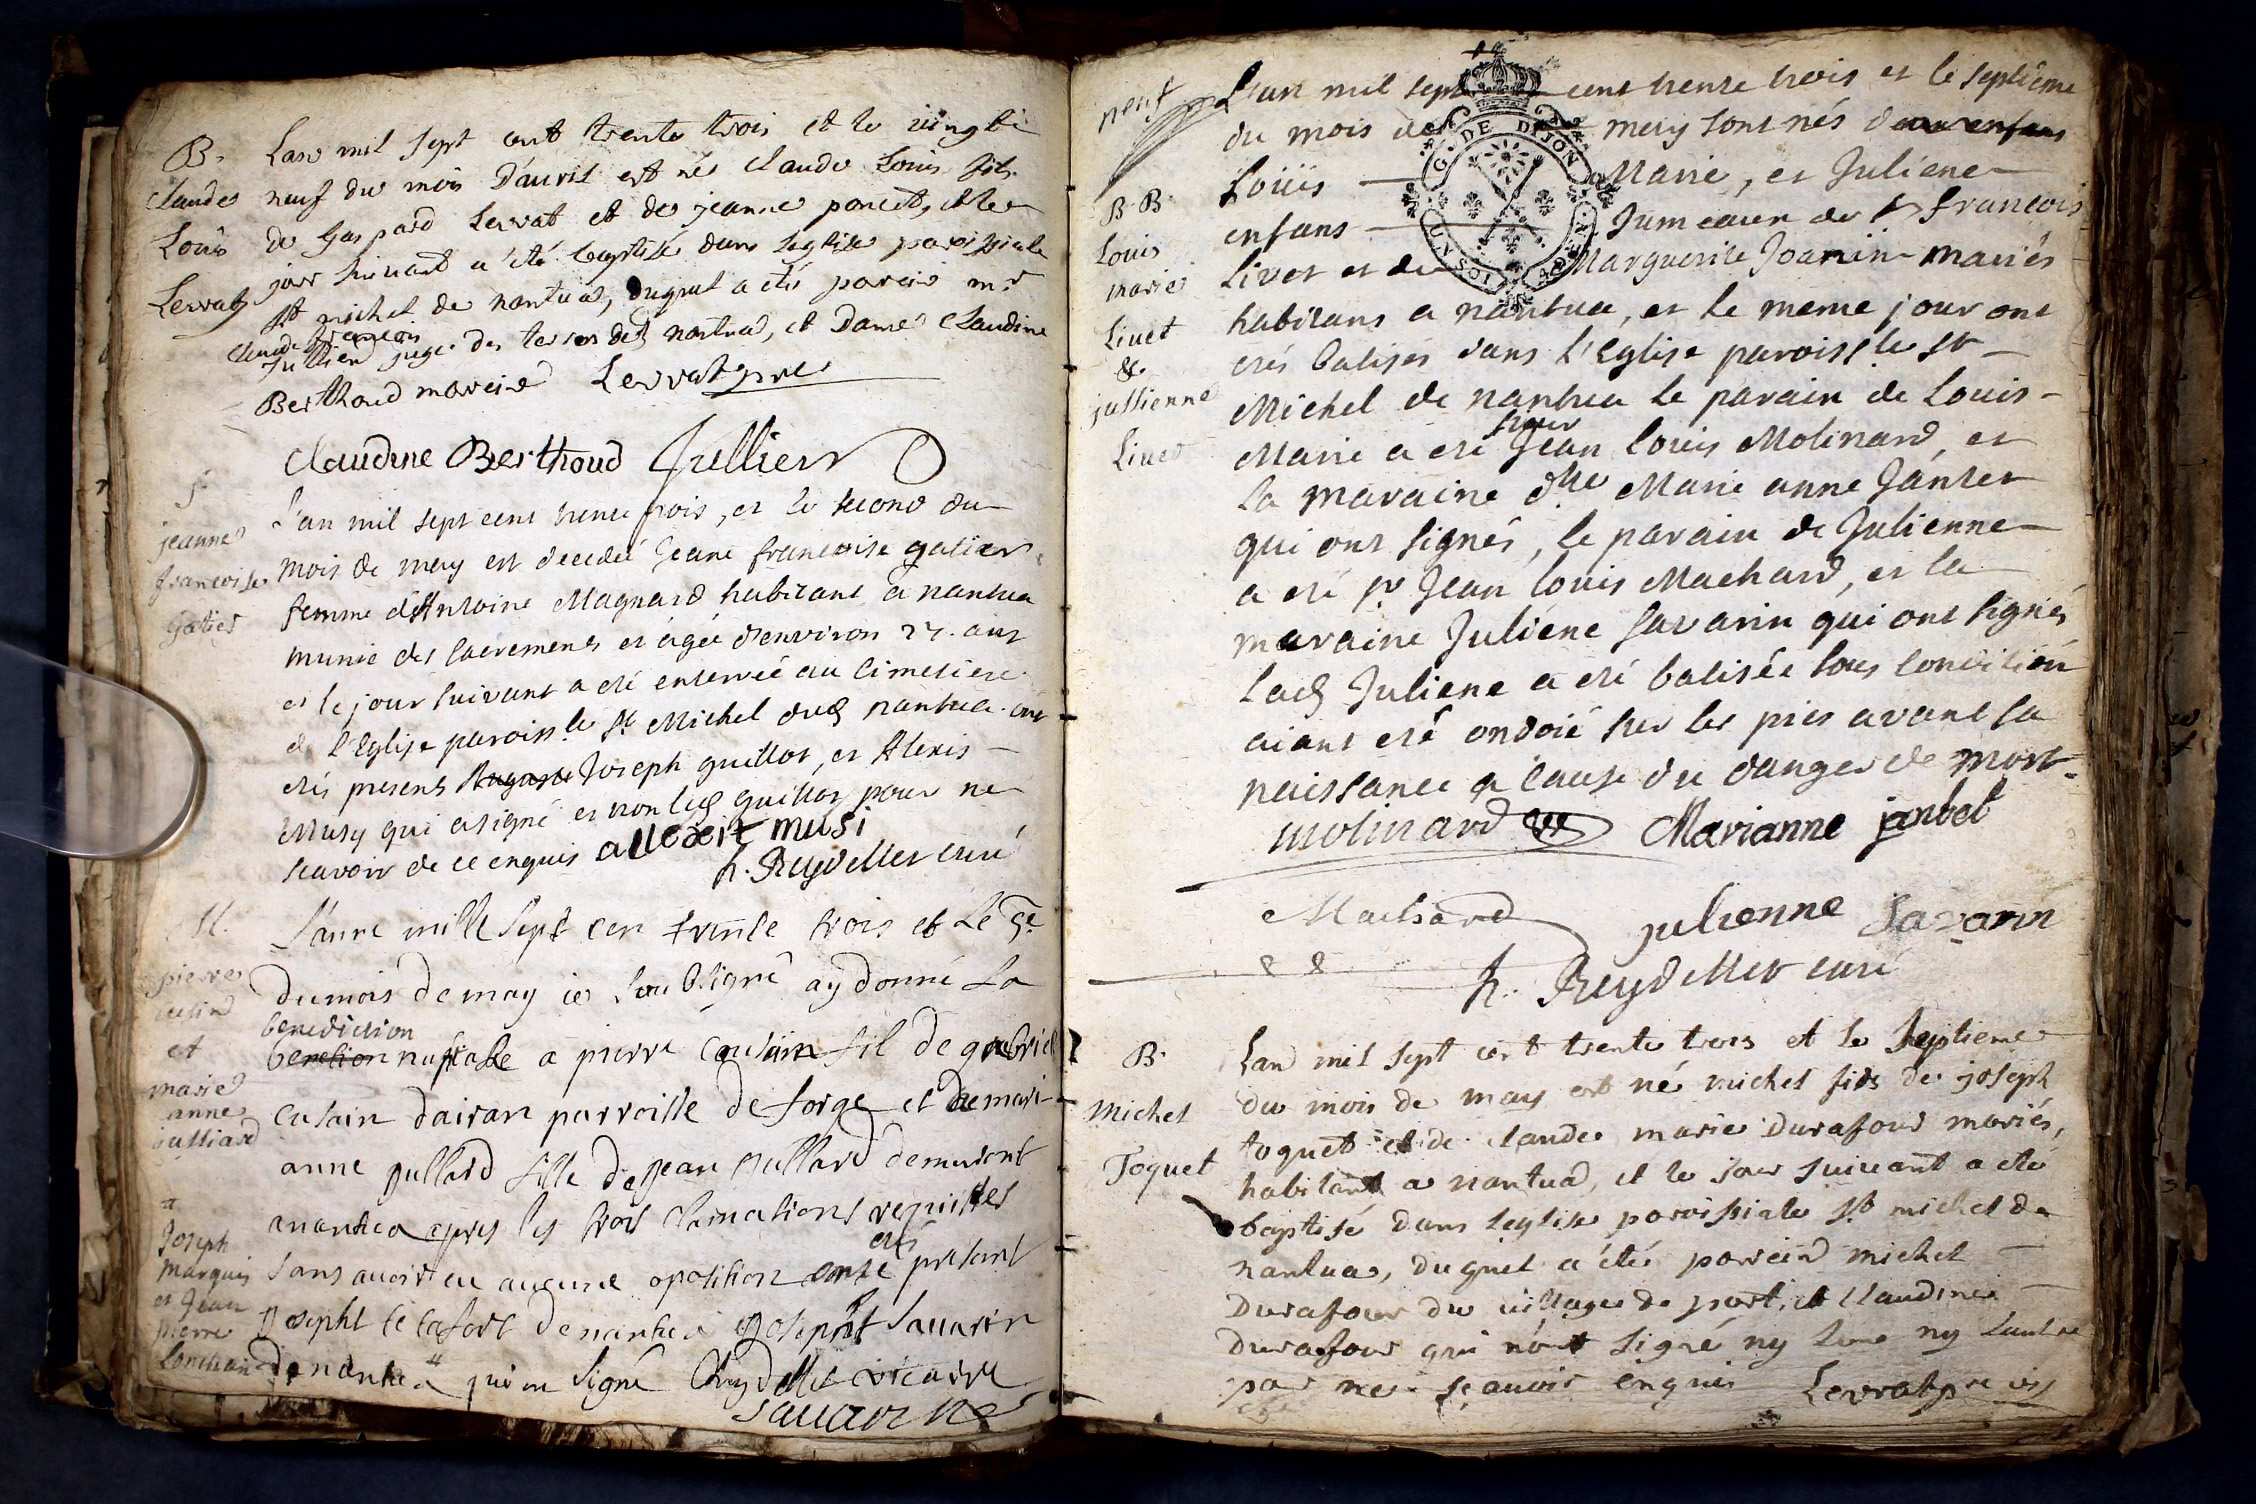 B.
Claude
Louis
Levrat
Lan mil sept cent trente trois et le vingt
neuf du mois d'avril est né Claude Louis fils
de Gaspard Levrat et de jeanne poncet, et le
jour suivant a été baptisé dans leglise paroissiale
st michel de nantua, duquel a été parain mr
claude françois
Jullien juge des terres de nantua, et Dame Claudine
Berthoud maraine Levrat pre
Claudine Berthoud Jullien
jeanne
francoise
gatier
L'an mil sept cent trente trois, et le second du
mois de mey est decedée Jeane francoise gatier
femme d'Antoine Magnard habitant a nantua
munie des sacremens et agée d'environ 27. ans
et le jour suivant a eté enterrée au cimetiere
de l'Eglise paroiss.le st Michel dud nantua. ont
etés presens Joseph guillot, et Alexis
Musy qui a signé et non led guillot pour ne
scavoir de ce enquis allexit musi
h. Reydellet curé
M.
pierre
cusin
et
marie
anne
julliard
L'anne mille sept cen trente trois et le 5e
du mois de may ie soubsigné ay donné la
benediction
benetion nuptiale a pierre cusain fil de gabriel
cusain dairan parroisse de forge et de marie
anne jullard fille de Jean jullard demeurant
a nantua apres les trois clamations requisses
etés
sans avoir eu aucune oposition ont presant
Joseph
marquis
et Jean
pierre
de nantua Joseph Savarin
de nantua qui on signé Reydellet vicaire
Savarin
neuf
L'an mil sept cent trente trois et le septième
du mois de mey sont nés deux enfans
Loüis Marie, et Juliene
enfans Jumeaux de sr francois
Livet et de Marguerite Joanin mariés
B. B.
Louis
marie
Livet
&
jullienne
Livet
habitans a nantua, et le meme jour ont
etés batisés dans l'Eglise paroissle st
Michel de nantua le parain de Louis
sieur
Marie a eté Jean louis Molinard, et
la maraine dlle Marie anne Jántet
qui ont signés, le parain de Julienne
a eté sr Jean louis Machard, et la
maraine Juliéne Savarin qui ont signés
lad Juliene a eté batisée sous condition
aiant eté ondoié sur les pies avant sa
naissance a cause du danger de mort
molinard Marianne jantet
Machard julienne Savarin
h. Reydellet curé
B.
Michel
Toquet
Lan mil sept cent trente trois et le septieme
du mois de may est né michel fils de joseph
toquet et de claude marie Durafour mariés,
habitant a nantua, et le jour suivant a eté
baptisé dans leglise paroissiale st michel de
nantua, duquel a été parain michel
Durafour du village de port, et Claudine
Durafour qui n'ont signé ny lune ny lautre
par ne sçavoir enquis Levrat pre vic